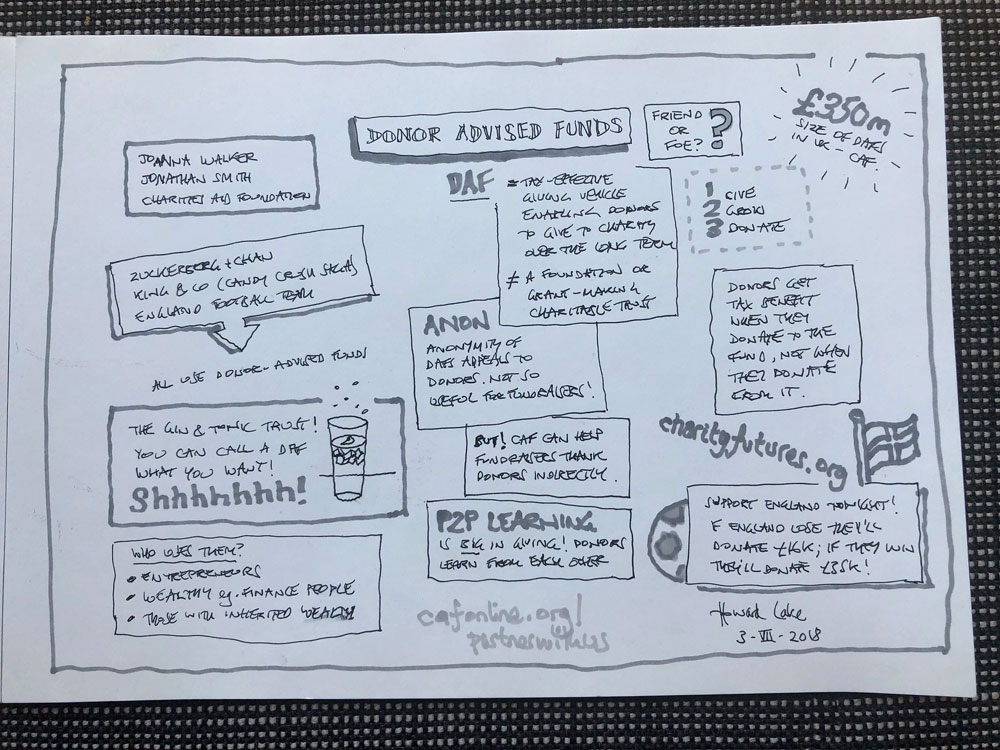 DONOR ADVISED FUNDS
FRIEND
OR
FOE?
?
£350m
SIZE OF DAFs
IN UK - CAF.
JOANNA WALKER
JONATHAN SMITH
CHARITIES AID FOUNDATION
DAF
= TAX-EFFECTIVE
GIVING VEHICLE
ENABLING DONORS
TO GIVE TO CHARITY
OVER THE LONG TERM
≠ A FOUNDATION OR
GRANT-MAKING
CHARITABLE TRUST
1 GIVE
2 GROW
3 DONATE
ZUCKERBERG + CHAN
KING & CO (CANDY CRUSH SAGA)
ENGLAND FOOTBALL TEAM
ALL USE DONOR-ADVISED FUNDS
DONORS GET
TAX BENEFIT
WHEN THEY
DONATE TO THE
FUND, NOT WHEN
THEY DONATE
FROM IT.
ANON
ANONYMITY OF
DAFs APPEALS TO
DONORS. NOT SO
USEFUL FOR FUNDRAISERS!
THE GIN & TONIC TRUST!
YOU CAN CALL A DAF
WHAT YOU WANT!
Shhhhhhh!
BUT! CAF CAN HELP
FUNDRAISERS THANK
DONORS INDIRECTLY.
charityfutures.org
P2P LEARNING
IS BIG IN GIVING! DONORS
LEARN FROM EACH OTHER
SUPPORT ENGLAND TONIGHT!
IF ENGLAND LOSE THEY'LL
DONATE £16K; IF THEY WIN
THEY'LL DONATE £35K!
WHO USES THEM?
• ENTREPRENEURS
• WEALTHY eg. FINANCE PEOPLE
• THOSE WITH INHERITED WEALTH
cafonline.org/
partnerwithus
Howard Lake
3-VII-2018